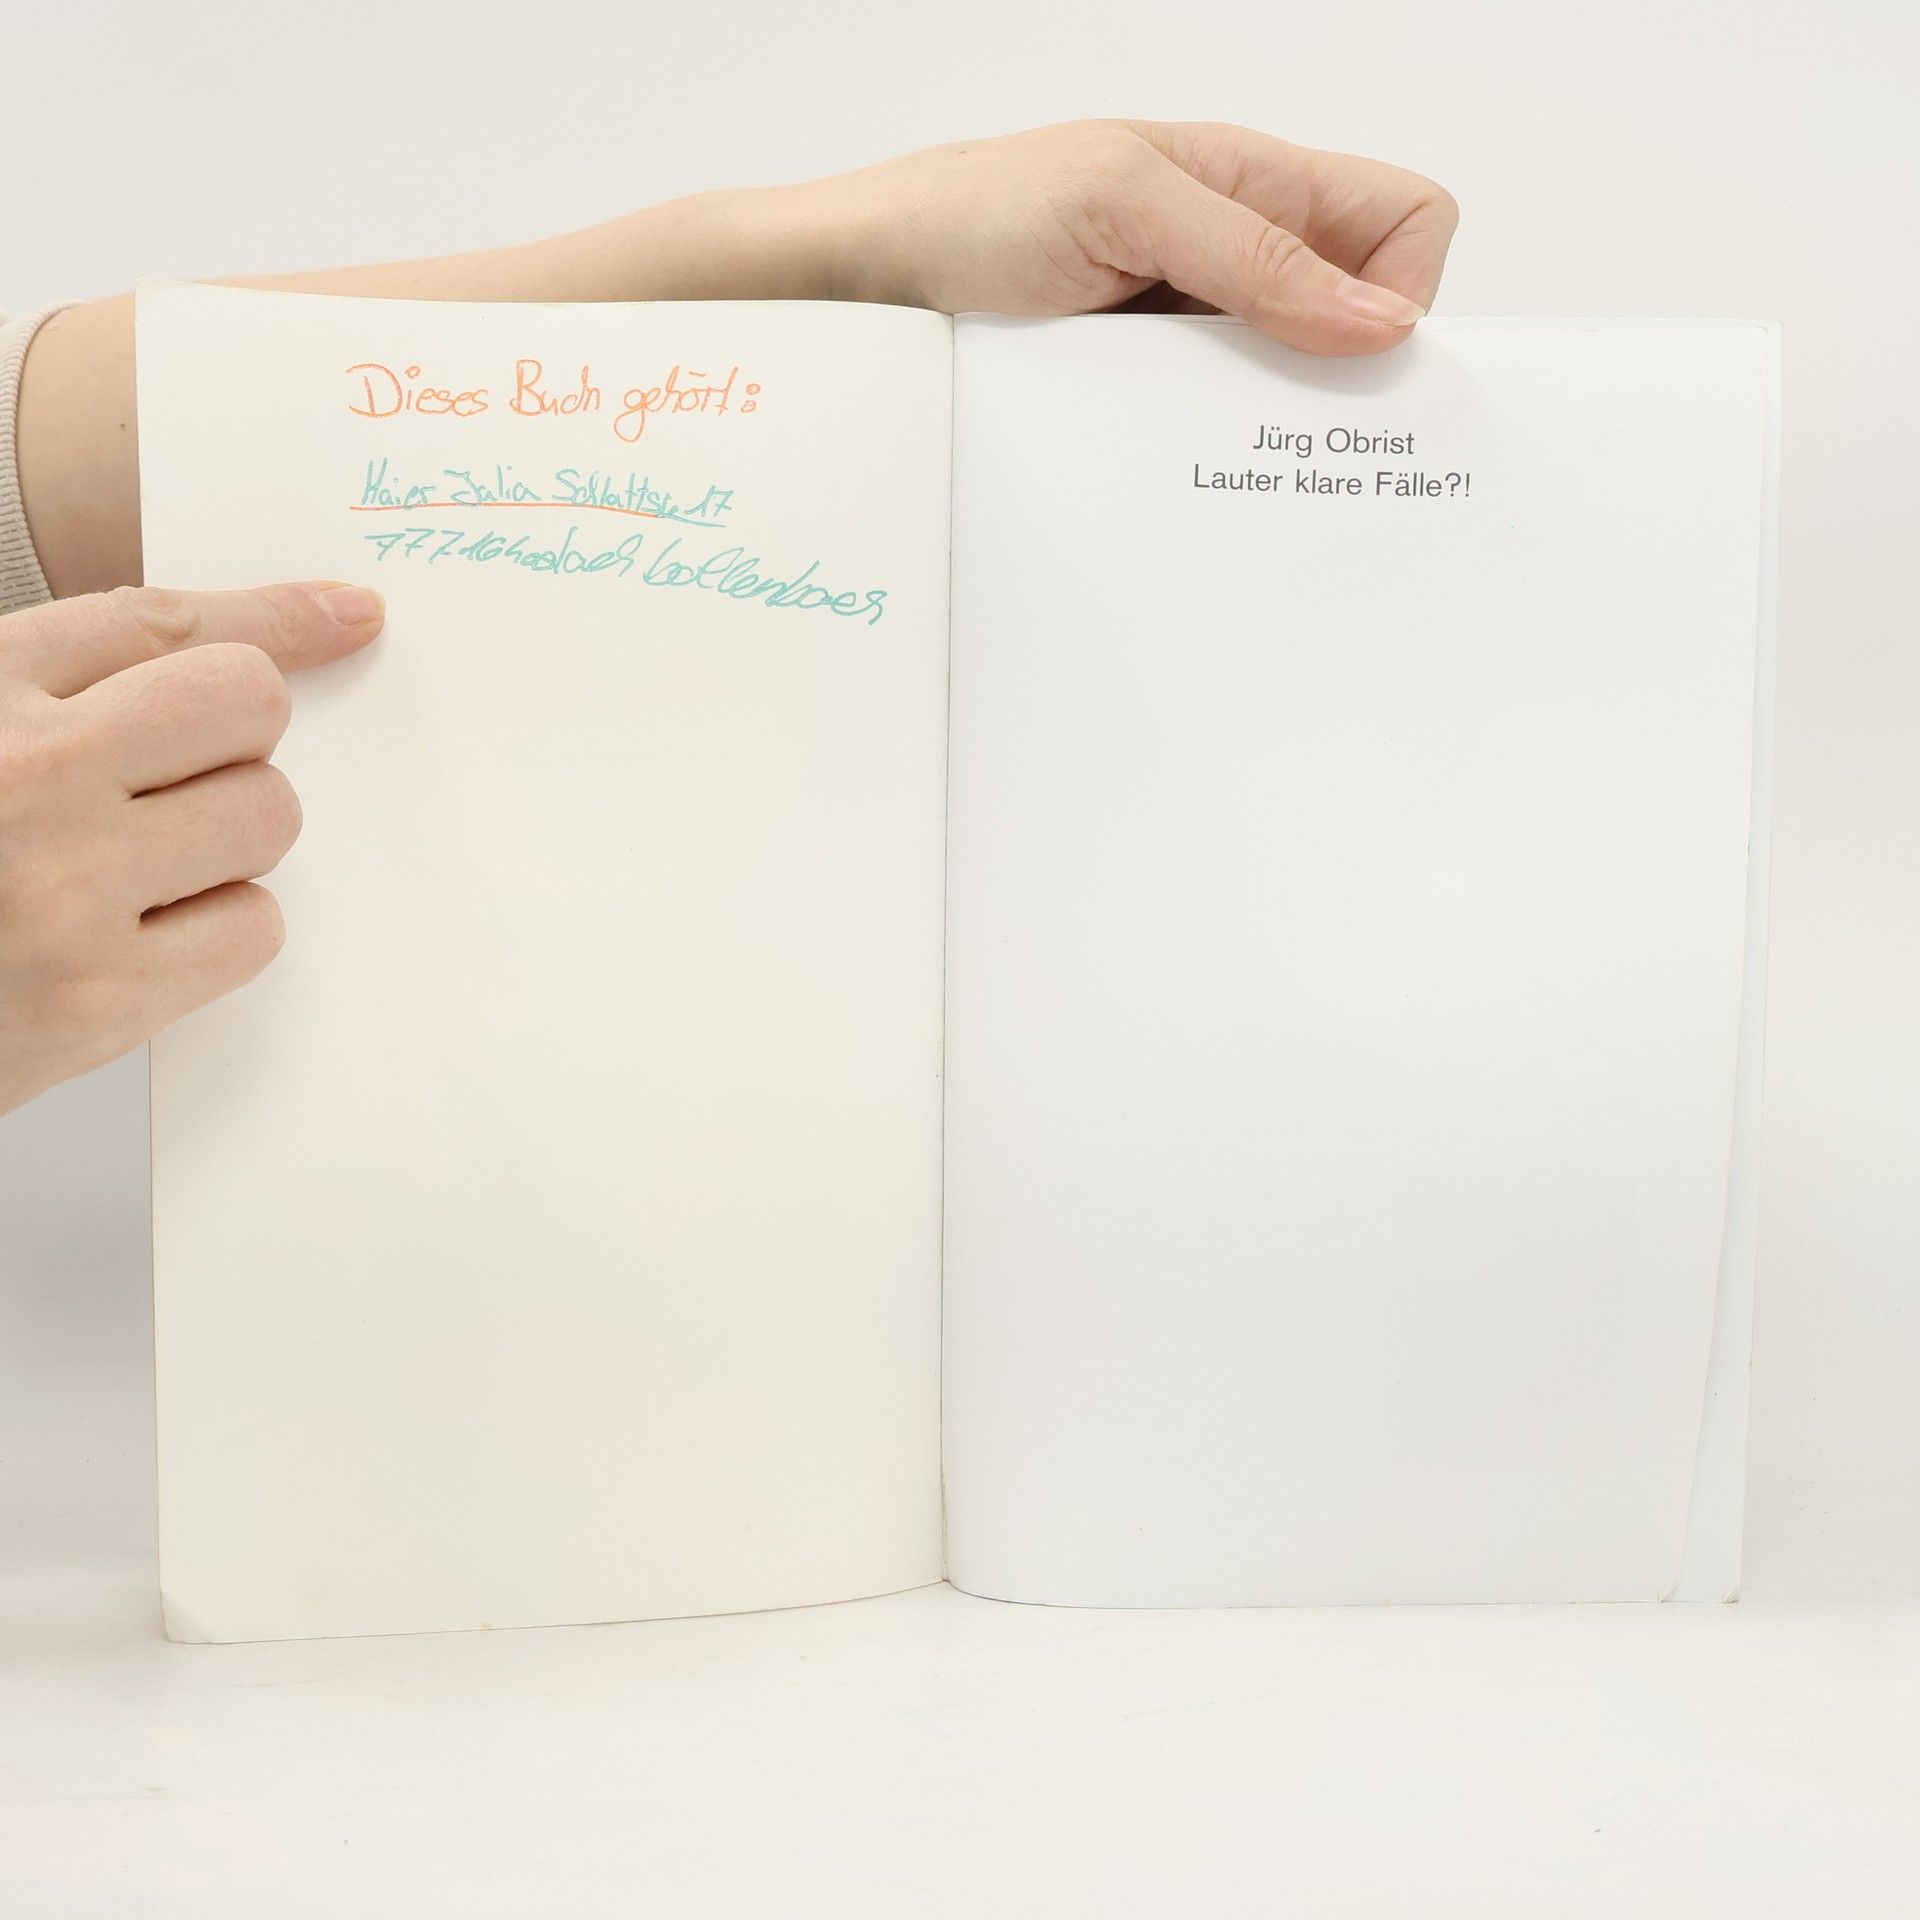 Dieses Buch gehört:
Maier Julia Schlattstr. 17
77716 haslach bollenbach
Jürg Obrist
Lauter klare Fälle?!